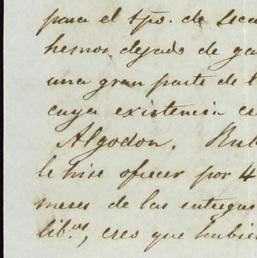 para el tpo. de Seca
hemos dejado de ga
una gran parte de l
cuya existencia es
Algodon. Rub
le hise ofrecer por 4
meses de las entregas
libos, creo que hubie